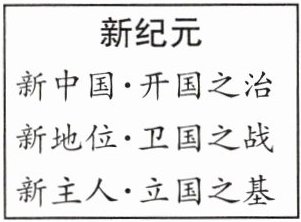 新纪元
新中国·开国之治
新地位·卫国之战
新主人·立国之基